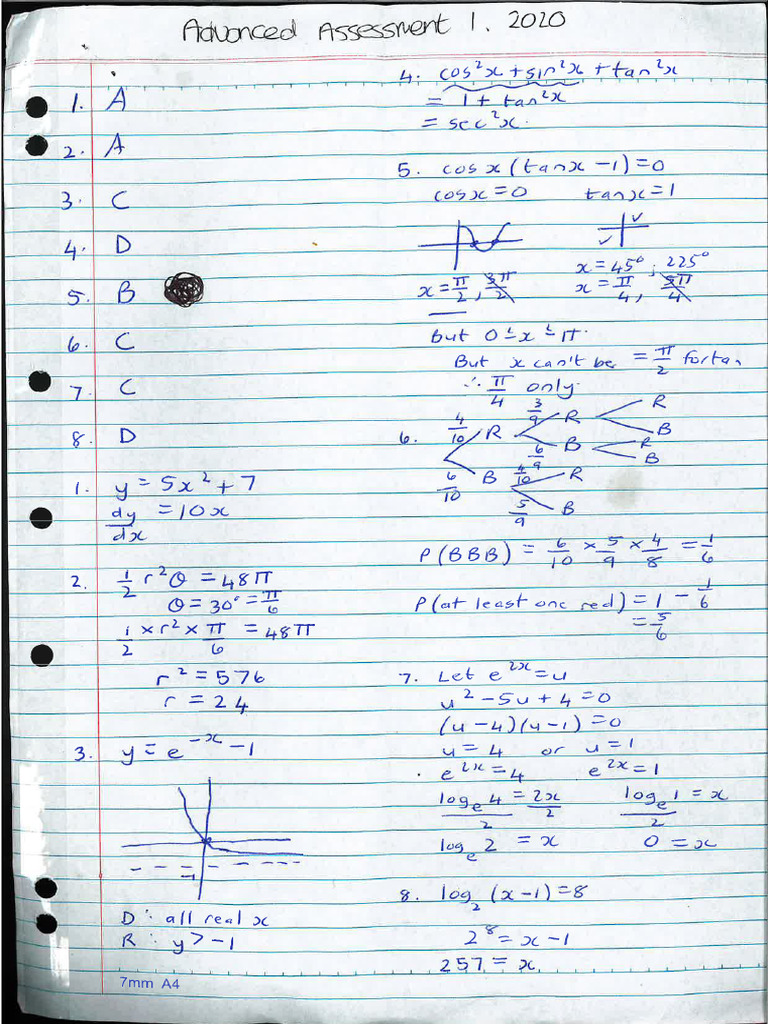 Advanced Assessment 1. 2020
1. A
2. A
3. C
4. D
5. B
6. C
7. C
8. D
1. y = 5x² + 7
dy/dx = 10x
2. 1/2 r²θ = 48π
θ = 30° = π/6
1/2 × r² × π/6 = 48π
r² = 576
r = 24
3. y = e^(-x) - 1
-1
D: all real x
R: y > -1
7mm A4
4. cos²x + sin²x + tan²x
= 1 + tan²x
= sec²x.
5. cosx (tanx - 1) = 0
cosx = 0 tanx = 1
x = 45°, 225°
x = π/2, 3π/2 x = π/4, 5π/4
But 0 ≤ x ≤ π.
But x can't be = π/2 for tan
∴ π/4 only.
6. 4/10 R 3/9 R R
B
6/9 B R
B
6/10 B 4/10 R
5/9 B
P(BBB) = 6/10 × 5/9 × 4/8 = 1/6
P(at least one red) = 1 - 1/6
= 5/6
7. Let e^(2x) = u
u² - 5u + 4 = 0
(u - 4)(u - 1) = 0
u = 4 or u = 1
e^(2x) = 4 e^(2x) = 1
log_e 4/2 = 2x/2 log_e 1/2 = x
log_e 2 = x 0 = x
8. log_2 (x - 1) = 8
2^8 = x - 1
257 = x.